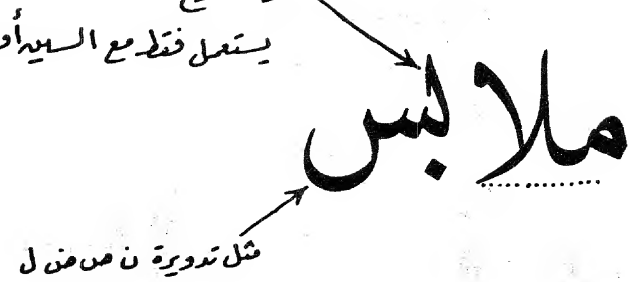 يستعمل فقط مع السين أو
ملابس
مثل تدويرة ن ص ض ل